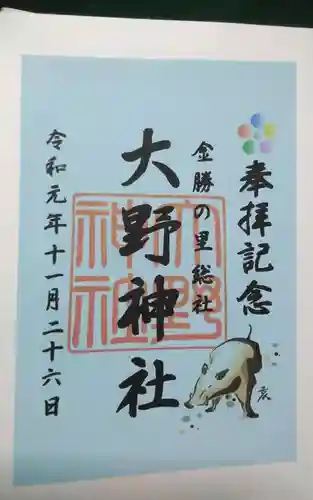 奉拝記念
金勝の里総社
大野神社
大野神社
令和元年十一月二十六日
亥